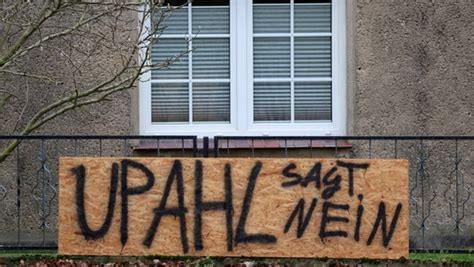 UPAHL SAgT
NEiN